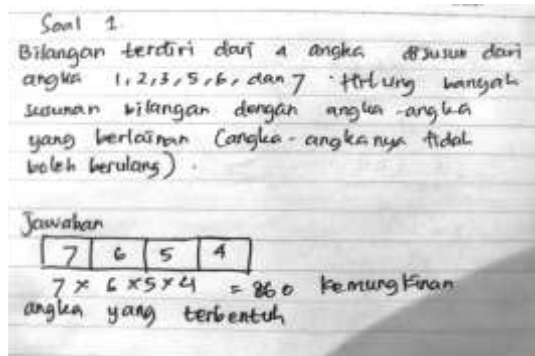 Soal 1
Bilangan terdiri dari 4 angka disusun dari
angka 1,2,3,5,6, dan 7. Hitung banyak
susunan bilangan dengan angka-angka
yang berlainan (angka-angkanya tidak
boleh berulang).
Jawaban
7 6 5 4
7 x 6 x 5 x 4 = 860 kemungkinan
angka yang terbentuk